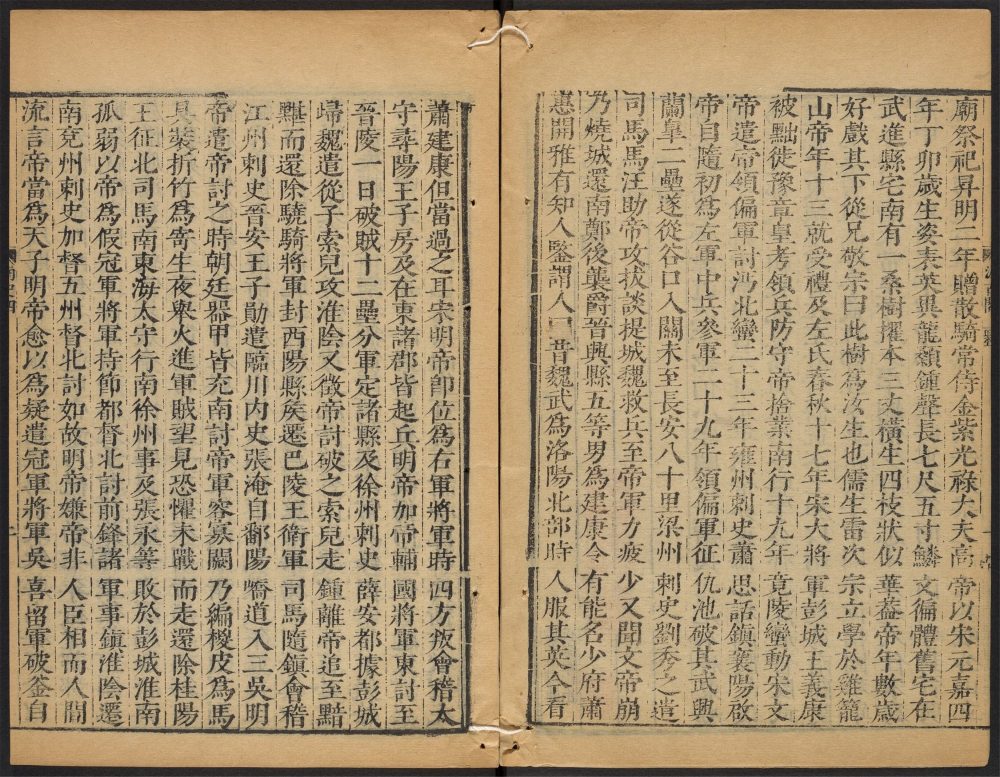 廟祭祀昇明二年贈散騎常侍金紫光祿大夫高帝以宋元嘉四
年丁卯歲生姿表英異龍顙鍾聲長七尺五寸鱗文徧體舊宅在
武進縣宅南有一桑樹擢本三丈橫生四枝狀似華葢帝年數歲
好戲其下從兄敬宗曰此樹爲汝生也儒生雷次宗立學於雞籠
山帝年十三就受禮及左氏春秋十七年宋大將軍彭城王義康
被黜徙豫章皇考領兵防守帝捨業南行十九年竟陵蠻動宋文
帝遣帝領偏軍討沔北蠻二十三年雍州刺史蕭思話鎭襄陽啟
帝自隨初爲左軍中兵參軍二十九年領偏軍征仇池破其武興
蘭皐二壘遂從谷口入關未至長安八十里梁州刺史劉秀之遣
司馬馬汪助帝攻拔談提城魏救兵至帝軍力疲少又聞文帝崩
乃燒城還南鄭後襲爵晉興縣五等男爲建康令有能名少府蕭
惠開雅有知人鑒謂人曰昔魏武爲洛陽北部時人服其英今看
蕭建康但當過之耳宋明帝卽位爲右軍將軍時四方叛會稽太
守尋陽王子房及在東諸郡皆起兵明帝加帝輔國將軍東討至
晉陵一日破賊十二壘分軍定諸縣及徐州刺史薛安都據彭城
歸魏遣從子索兒攻淮陰又徵帝討破之索兒走鍾離帝追至黯
黮而還除驍騎將軍封西陽縣矦遷巴陵王衛軍司馬隨鎭會稽
江州刺史晉安王子勛遣臨川內史張淹自鄱陽嶠道入三吳明
帝遣帝討之時朝廷器甲皆充南討帝軍容寡闕乃編椶皮爲馬
具裝折竹爲寄生夜舉火進軍賊望見恐懼未戰而走還除桂陽
王征北司馬南東海太守行南徐州事及張永等敗於彭城淮南
孤弱以帝爲假冠軍將軍持節都督北討前鋒諸軍事鎭淮陰遷
南兗州刺史加督五州督北討如故明帝嫌帝非人臣相而人間
流言帝當爲天子明帝愈以爲疑遣冠軍將軍吳喜留軍破釜自